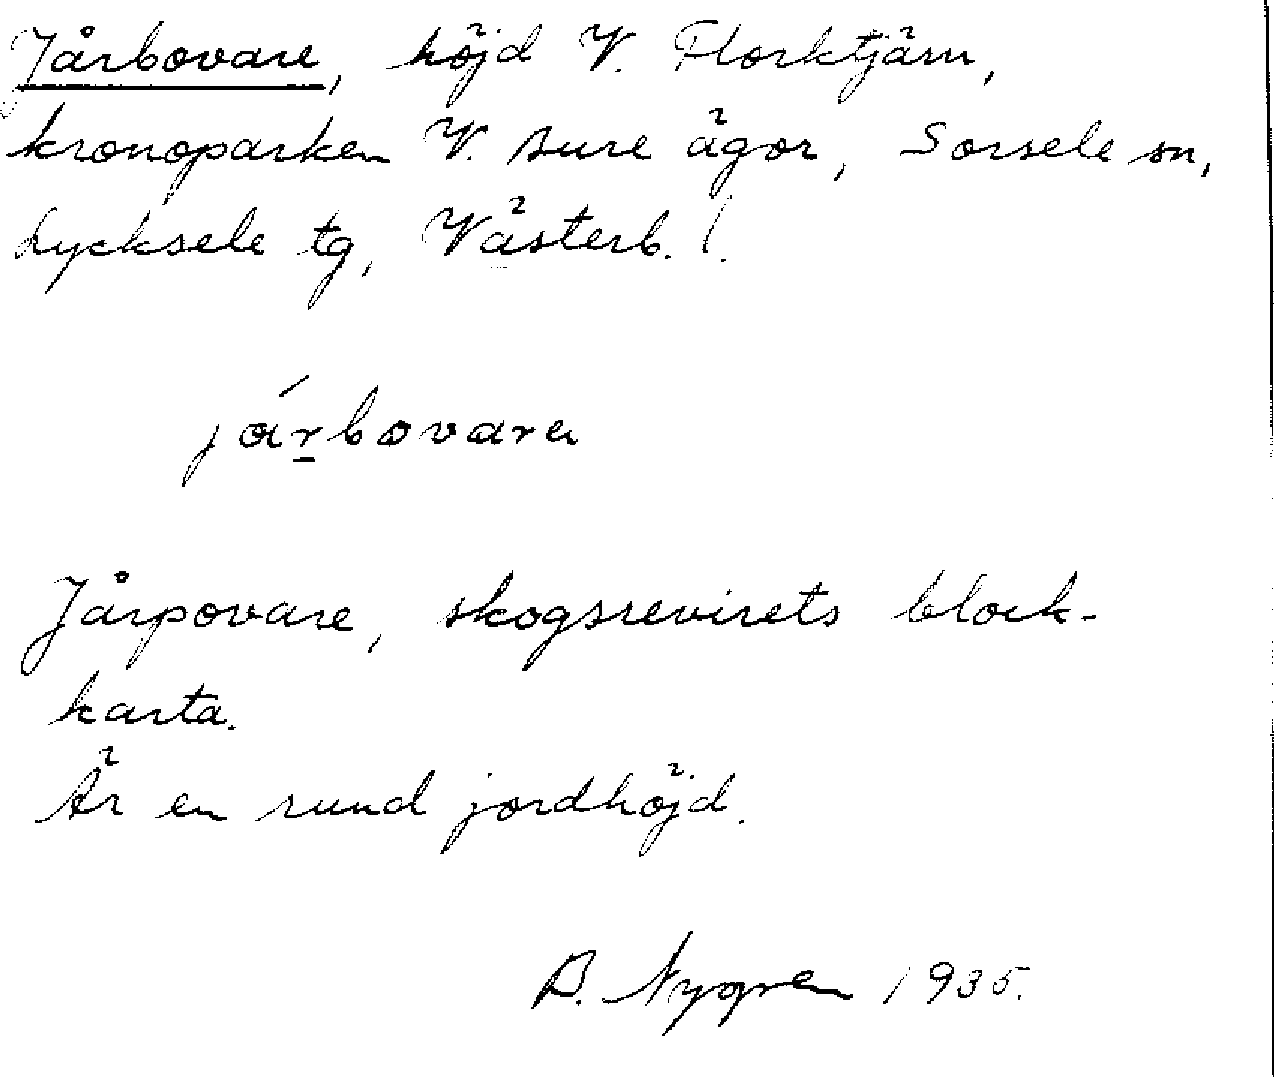 Jårbovare, höjd V. Florktjärn,
kronoparken V. sure ägor, Sorsele sn,
Lycksele tg, Västerb. l.
järbovare
Jårpovare, skogsrevirets block-
karta.
Är en rund jordhöjd.
B. Nygren 1935.